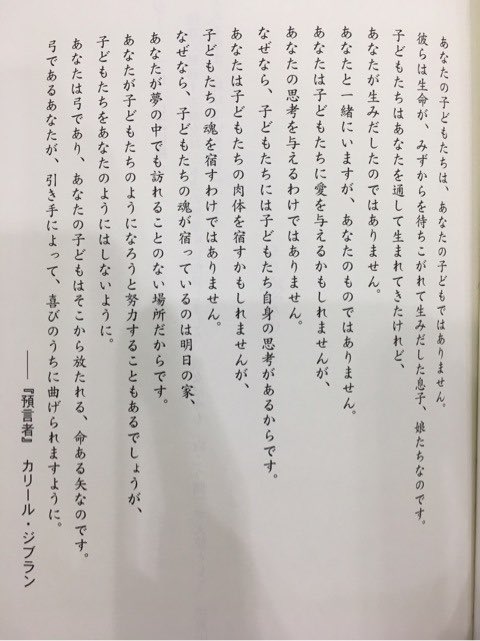 あなたの子どもたちは、あなたの子どもではありません。
彼らは生命が、みずからを待ちこがれて生みだした息子、娘たちなのです。
子どもたちはあなたを通して生まれてきたけれど、
あなたが生みだしたのではありません。
あなたと一緒にいますが、あなたのものではありません。
あなたは子どもたちに愛を与えるかもしれませんが、
あなたの思考を与えるわけではありません。
なぜなら、子どもたちには子どもたち自身の思考があるからです。
あなたは子どもたちの肉体を宿すかもしれませんが、
子どもたちの魂を宿すわけではありません。
なぜなら、子どもたちの魂が宿っているのは明日の家、
あなたが夢の中でも訪れることのない場所だからです。
あなたが子どもたちのようになろうと努力することもあるでしょうが、
子どもたちをあなたのようにはしないように。
あなたは弓であり、あなたの子どもはそこから放たれる、命ある矢なのです。
弓であるあなたが、引き手によって、喜びのうちに曲げられますように。
――『預言者』 カリール・ジブラン